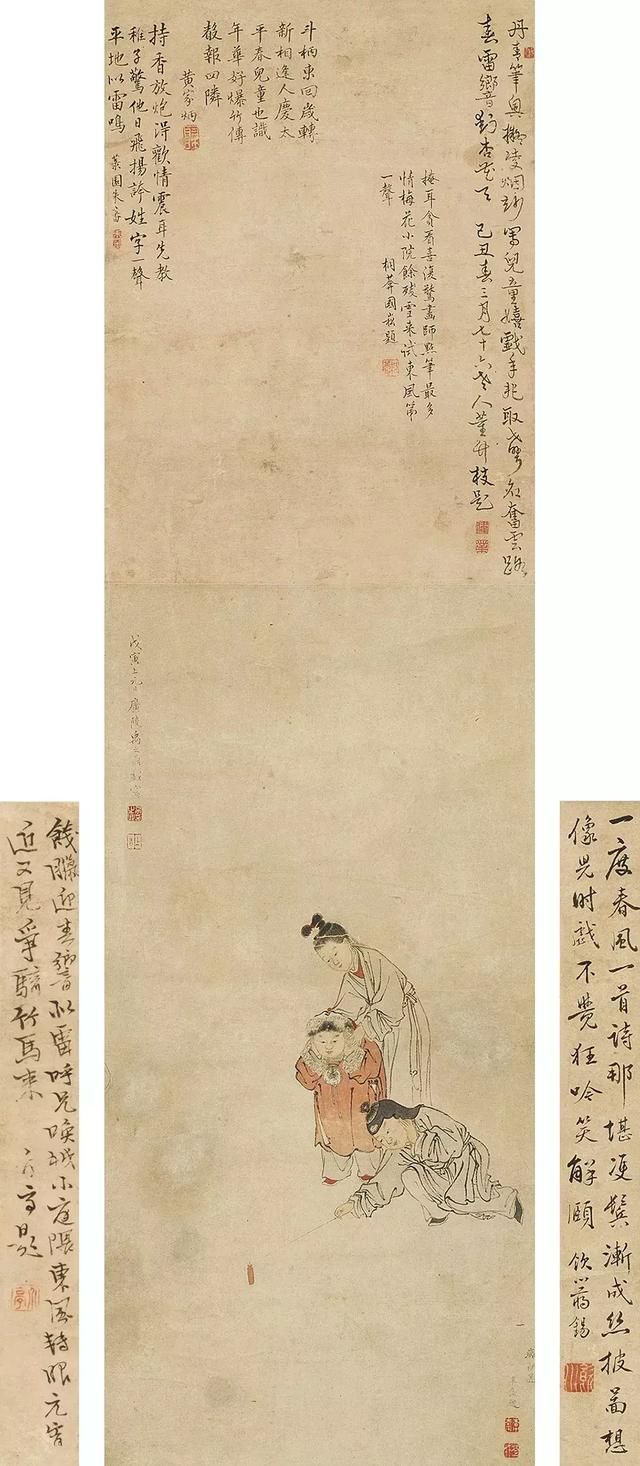 丹青筆與擬凌烟
軍兒童嬉戲手非取
名奮雲路
春雷響音對杏花天
己丑春三月七十六老人董升枝題
掩耳貪看喜復驚畫師點筆最多
情梅花小院餘殘雪来試東風第
一聲
桐莽國
題
斗柄東回歲轉
新相逢人慶太
平春兒童也識
年華好爆竹傳
聲報四隣
黄家炳
持香放炮浔歡情震耳先教
稚子驚他日飛揚許姓字一聲
平地似雷鳴
葉園朱
戊寅上元日廣陵禹之鼎戲寫
一度春風一首詩那堪凌鬢漸成絲披圖想
像兒时戲不覺狂吟笑解頤
飲
錫
餞臘迎春響似雷呼兄喚
小庭隈東風轉眼元宵
近又見爭騎竹馬来
題